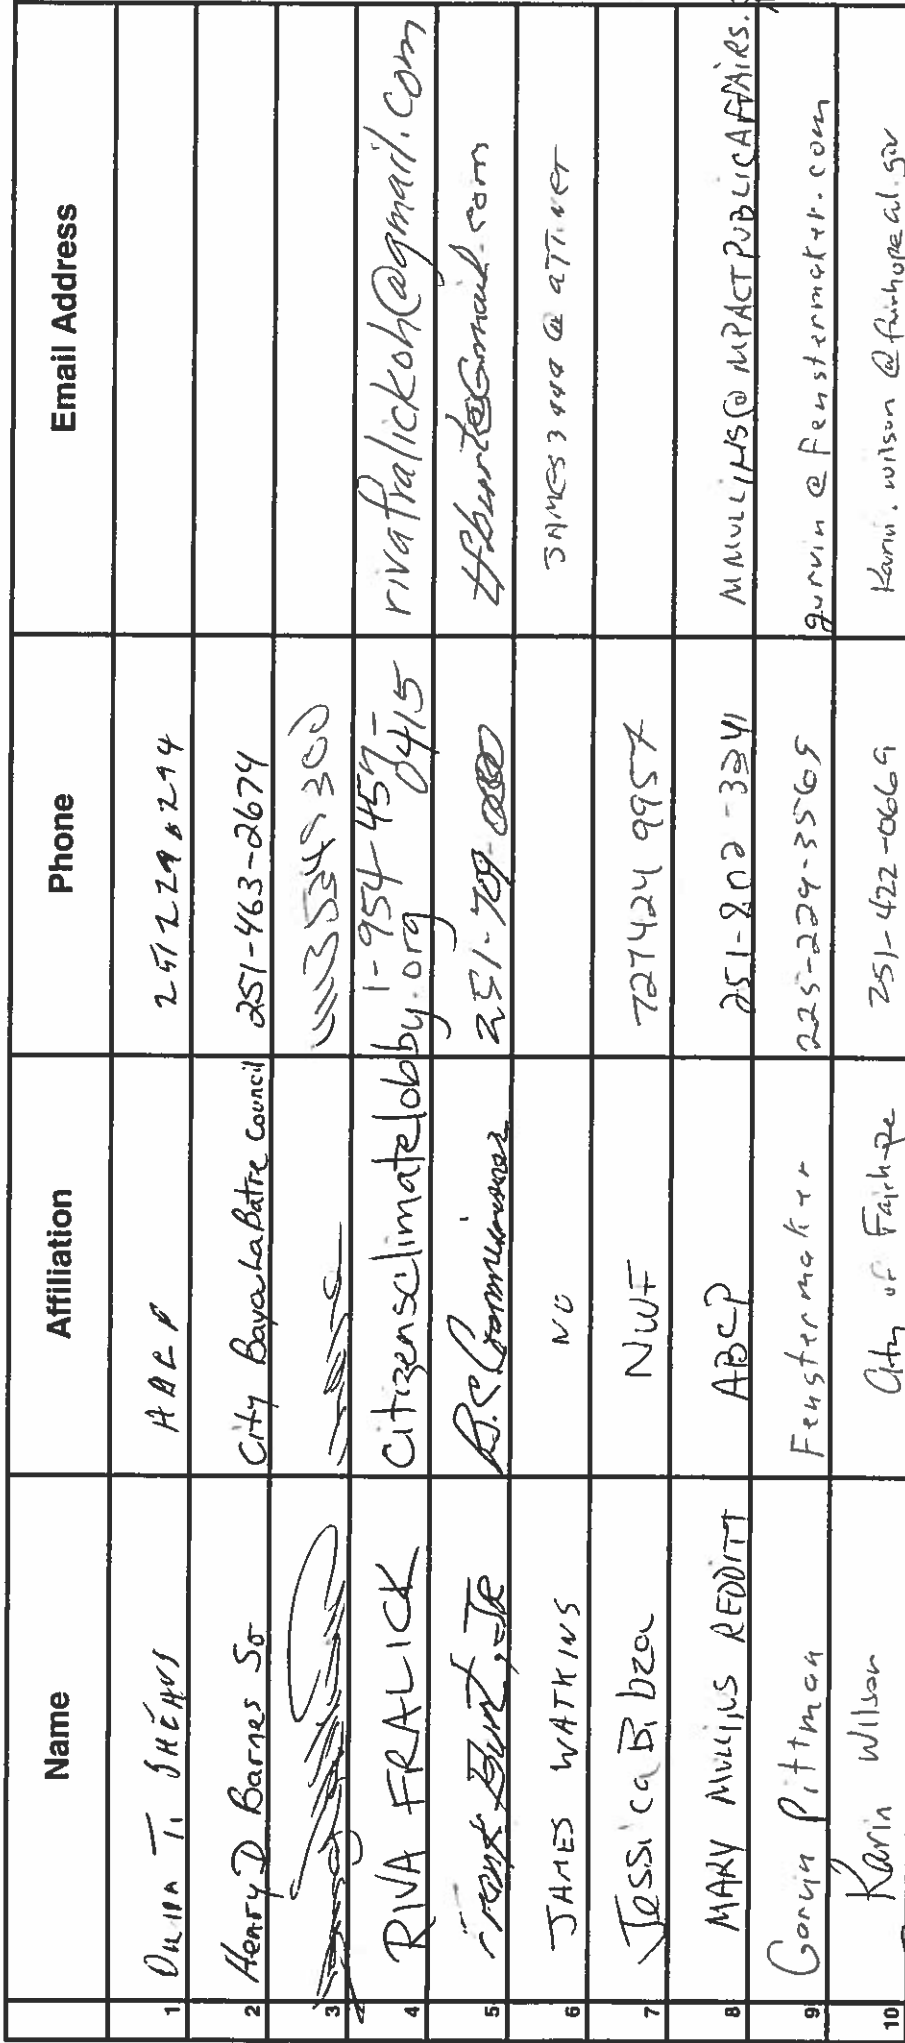 Name Affiliation Phone Email Address
1 T. ABCP
2 Henry D Barnes Sr City Bayou La Batre Council 251-463-2674
3
4 RIVA FRALICK citizensclimatelobby.org 1-954-457-0415 rivafralickoh@gmail.com
5 Burt, Jr B.C. Commissioner 251-709-
6 JAMES WATKINS NO JAMES3444@ATT.NET
7 Jessica Bibza NWF 727 424 9957
8 MARY MULLINS REDDITT ABCP 251-802-3341 MMULLINS@MPACTPUBLICAFFAIRS.
9 Garvin Pittman Fenstermaker 225-229-3565 garvin@fenstermaker.com
10 Karin Wilson City of Fairhope 251-422-0669 Karin.wilson@fairhopeal.gov